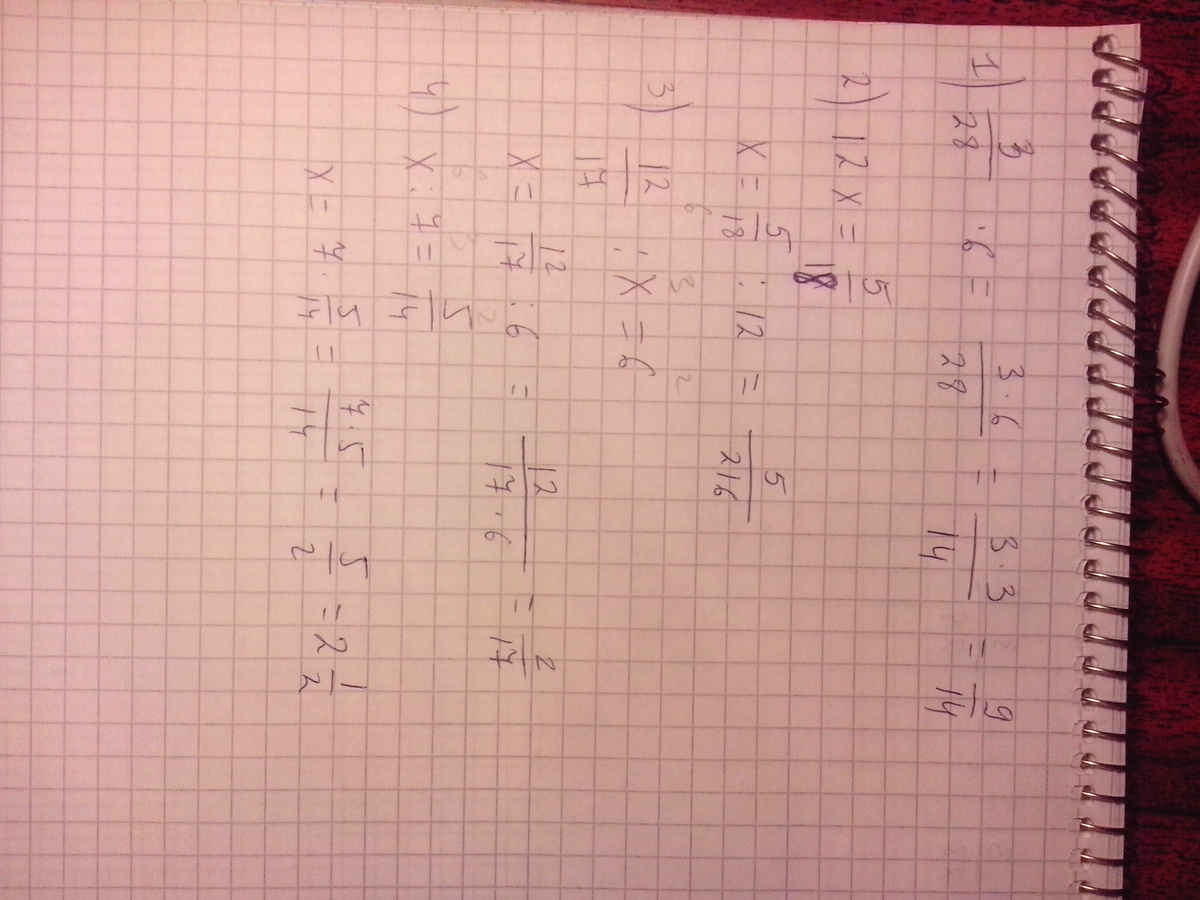 1) 3/28 · 6 = 3·6/28 = 3·3/14 = 9/14
2) 12x = 5/18
x = 5/18 : 12 = 5/216
3) 12/17 : x = 6
x = 12/17 : 6 = 12/17·6 = 2/17
4) x : 7 = 5/14
x = 7 · 5/14 = 7·5/14 = 5/2 = 2 1/2